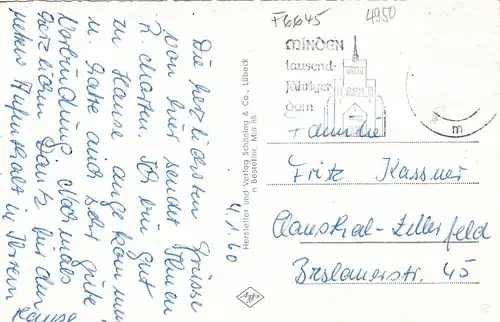 F6645
4950
MINDEN
tausend-
jähriger
dom
m
Familie
Fritz Kassner
Clausthal-Zellerfeld
Breslauerstr. 45
Hersteller und Verlag Schöning & Co., Lübeck
n Bestellnr. Min 85
4.1.60
Die herzlichsten Grüsse
von hier sendet Ihnen
R. Marten. Ich bin gut
zu Hause angekommen
u. hatte auch sehr gute
Verbindung. Nochmals
herzlichen Dank für den
netten Aufenthalt in Ihrem
Hause